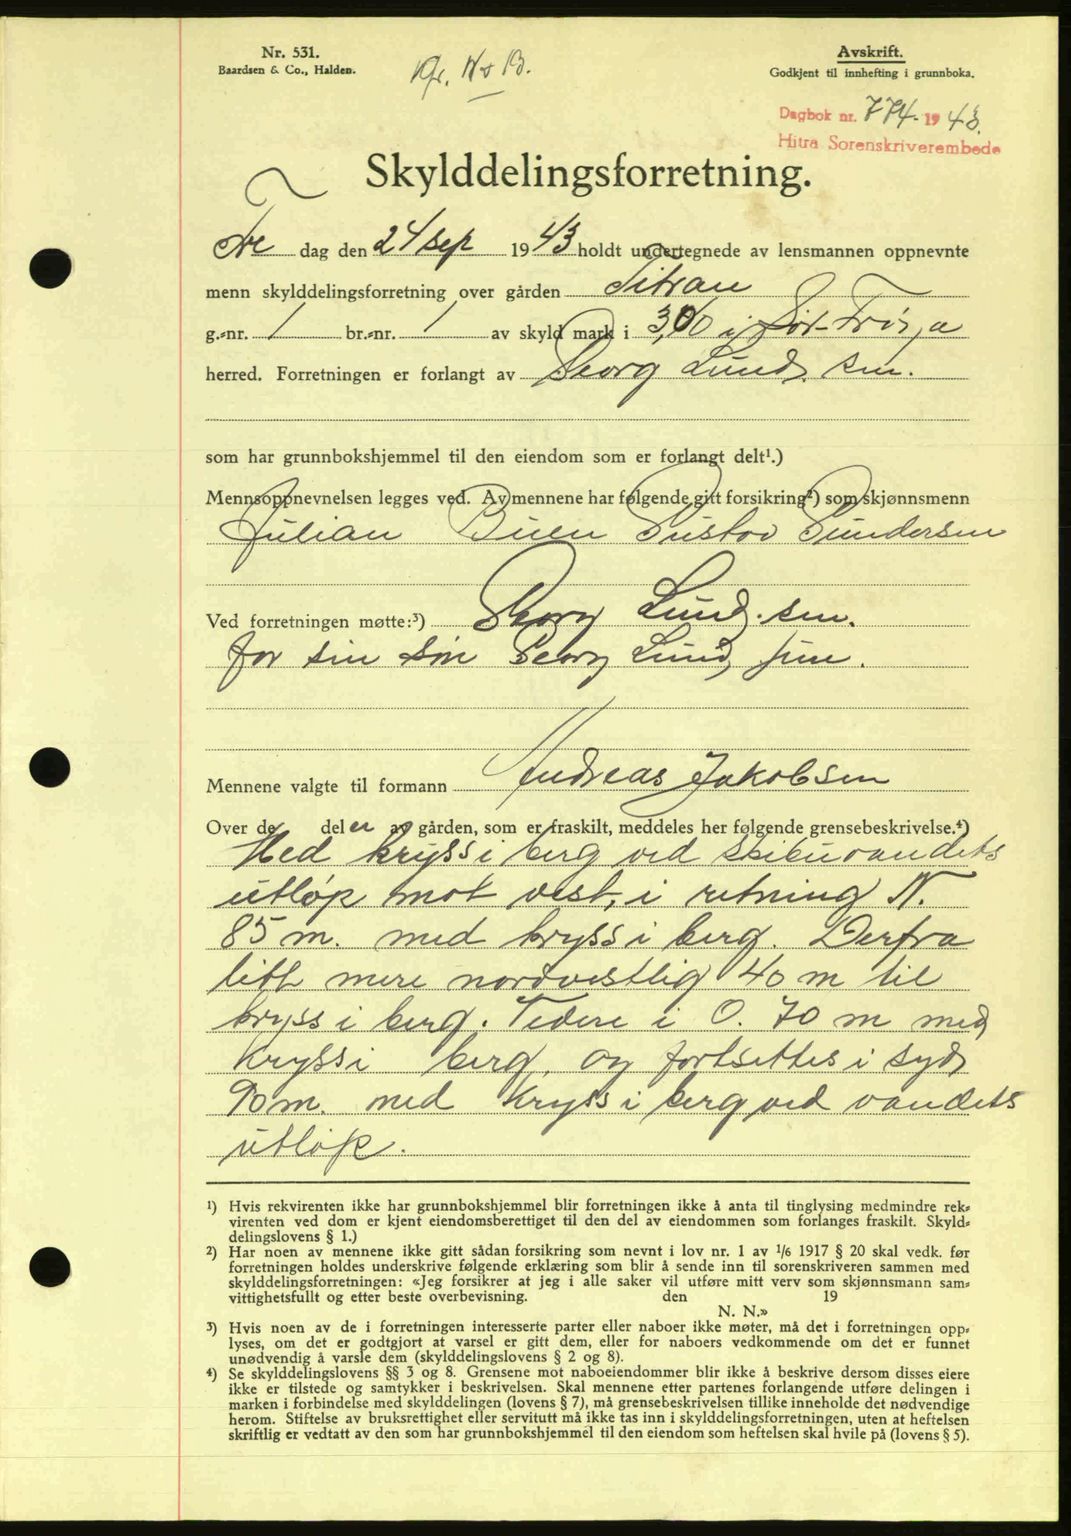 Nr. 531.
Baardsen & Co., Halden.
Avskrift.
Godkjent til innhefting i grunnboka.
Dagbok nr. 774. 1943.
Hitra Sorenskriverembede
Skylddelingsforretning.
Fre dag den 24 sep 1943 holdt undertegnede av lensmannen oppnevnte
menn skylddelingsforretning over gården Titran
g.=nr. 1 br.=nr. 1 av skyld mark i 3,00 i Sør-Frøya
herred. Forretningen er forlangt av Georg Lund. sen.
som har grunnbokshjemmel til den eiendom som er forlangt delt¹.)
Mennsoppnevnelsen legges ved. Av mennene har følgende gitt forsikring²) som skjønnsmenn
Julian Buen Gustav Gundersen
Ved forretningen møtte:³) Georg Lund. sen.
for sin søn Georg Lund, jun.
Mennene valgte til formann Andreas Jakobsen
Over de deler av gården, som er fraskilt, meddeles her følgende grensebeskrivelse.⁴)
Med kryss i berg ved skibuvandets
utløp mot vest, i retning N.
85 m. med kryss i berg. Derfra
litt mere nordvestlig 40 m til
kryss i berg. Videre i O. 70 m med
kryss i berg, og fortsettes i syd
90 m. med kryss i berg ved vandets
utløp.
¹) Hvis rekvirenten ikke har grunnbokshjemmel blir forretningen ikke å anta til tinglysing medmindre rek=
virenten ved dom er kjent eiendomsberettiget til den del av eiendommen som forlanges fraskilt. Skyld=
delingslovens § 1.)
²) Har noen av mennene ikke gitt sådan forsikring som nevnt i lov nr. 1 av ¹/6 1917 § 20 skal vedk. før
forretningen holdes underskrive følgende erklæring som blir å sende inn til sorenskriveren sammen med
skylddelingsforretningen: «Jeg forsikrer at jeg i alle saker vil utføre mitt verv som skjønnsmann sam=
vittighetsfullt og etter beste overbevisning. den 19
N. N.»
³) Hvis noen av de i forretningen interesserte parter eller naboer ikke møter, må det i forretningen opp=
lyses, om det er godtgjort at varsel er gitt dem, eller for naboers vedkommende om det er funnet
unødvendig å varsle dem (skylddelingslovens § 2 og 8).
⁴) Se skylddelingslovens §§ 3 og 8. Grensene mot naboeiendommer blir ikke å beskrive dersom disses eiere
ikke er tilstede og samtykker i beskrivelsen. Skal mennene etter partenes forlangende utføre delingen i
marken i forbindelse med skylddelingen (lovens § 7), må grensebeskrivelsen tillike inneholde det nødvendige
herom. Stiftelse av bruksrettighet eller servitutt må ikke tas inn i skylddelingsforretningen, uten at heftelsen
skriftlig er vedtatt av den som har grunnbokshjemmel til den eiendom som heftelsen skal hvile på (lovens § 5).